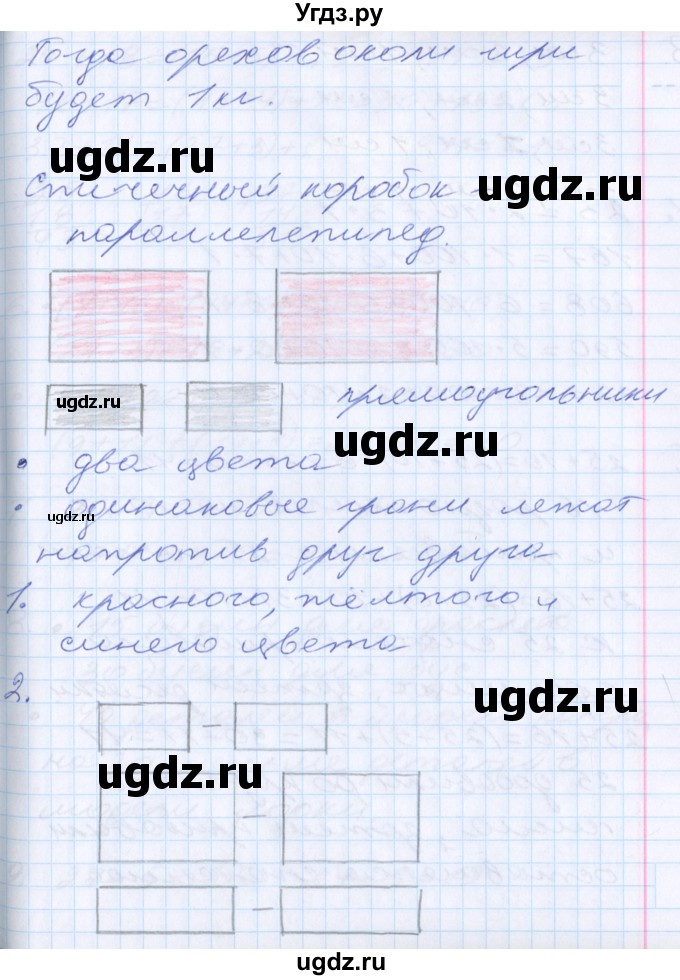 Угдз.ру
Тогда орехов около три
будет 1 кг.
ugdz.ru
ugdz.ru
Спичечный коробок –
параллелепипед.
ugdz.ru
прямоугольники
ugdz.ru
• два цвета
• одинаковые грани лежат
ugdz.ru
напротив друг друга
1. красного, жёлтого и
синего цвета
2.
ugdz.ru
–
ugdz.ru
–
–
ugdz.ru